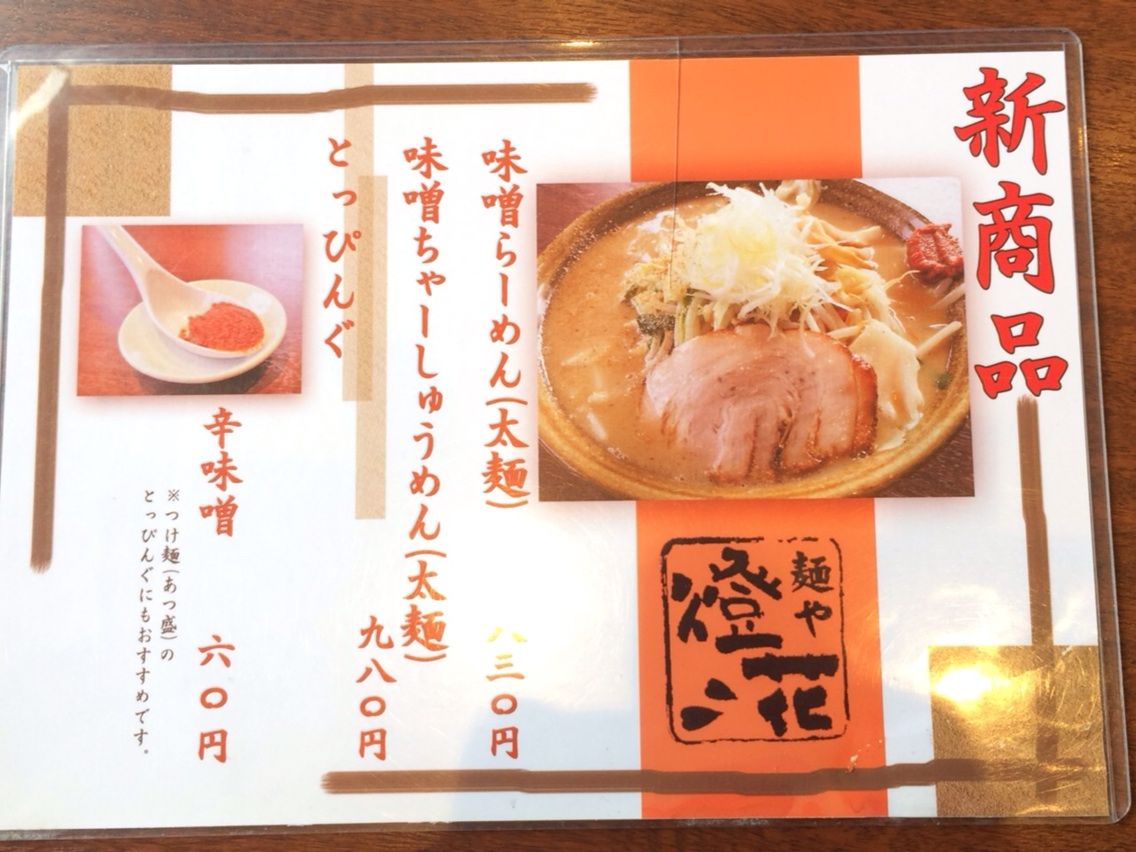 新商品
麺や
燈花
味噌らーめん(太麺)
八三〇円
味噌ちゃーしゅうめん(太麺)
九八〇円
とっぴんぐ
辛味噌
六〇円
※つけ麺(あつ盛)の
とっぴんぐにもおすすめです。